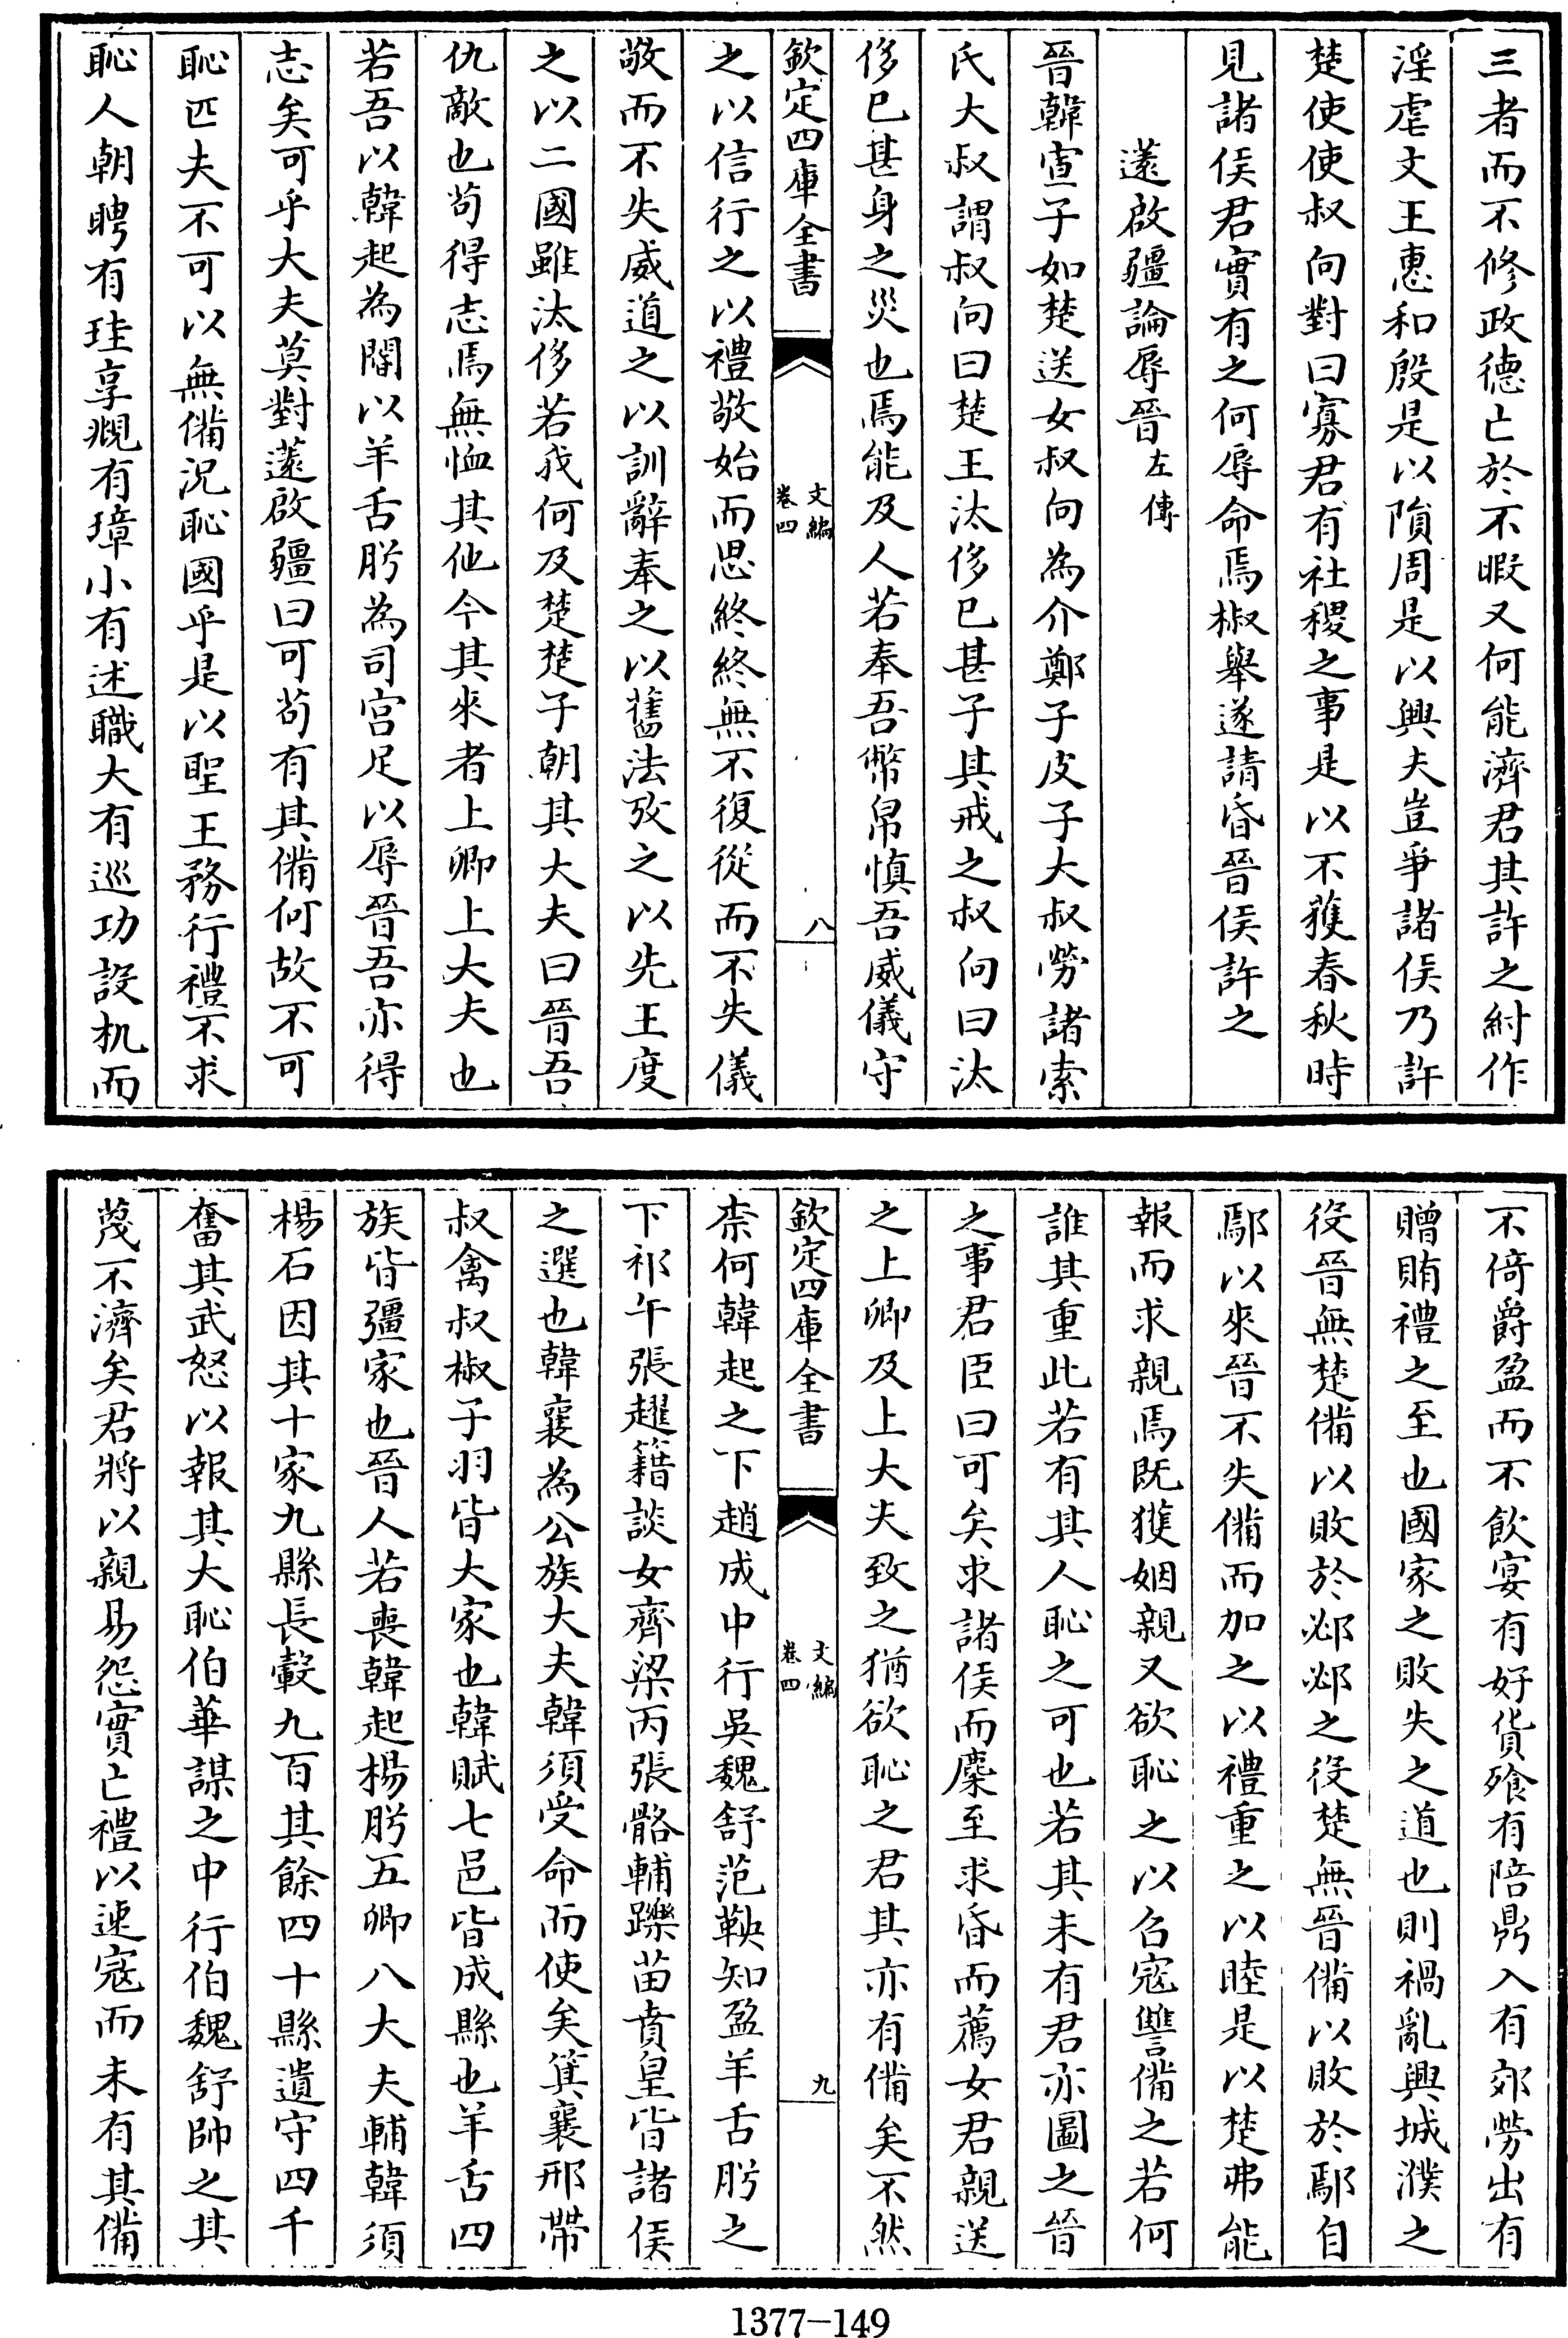 三者而不修政德亡於不暇又何能濟君其許之紂作
淫虐文王惠和殷是以隕周是以興夫豈爭諸侯乃許
楚使使叔向對曰寡君有社稷之事是以不獲春秋時
見諸侯君實有之何辱命焉椒舉遂請昏晉侯許之
薳啟疆論辱晉左傳
晉韓宣子如楚送女叔向為介鄭子皮子大叔勞諸索
氏大叔謂叔向曰楚王汰侈已甚子其戒之叔向曰汰
侈已甚身之災也焉能及人若奉吾幣帛慎吾威儀守
欽定四庫全書 文編卷四 八
之以信行之以禮敬始而思終終無不復從而不失儀
敬而不失威道之以訓辭奉之以舊法攷之以先王度
之以二國雖汰侈若我何及楚楚子朝其大夫曰晉吾
仇敵也茍得志焉無恤其他今其來者上卿上大夫也
若吾以韓起為閽以羊舌肸為司宮足以辱晉吾亦得
志矣可乎大夫莫對薳啟疆曰可茍有其備何故不可
恥匹夫不可以無備況恥國乎是以聖王務行禮不求
恥人朝聘有珪享覜有璋小有述職大有巡功設机而
不倚爵盈而不飲宴有好貨飧有陪鼎入有郊勞出有
贈賄禮之至也國家之敗失之道也則禍亂興城濮之
役晉無楚備以敗於邲邲之役楚無晉備以敗於鄢自
鄢以來晉不失備而加之以禮重之以睦是以楚弗能
報而求親焉既獲姻親又欲恥之以召寇讐備之若何
誰其重此若有其人恥之可也若其未有君亦圖之晉
之事君臣曰可矣求諸侯而麇至求昏而薦女君親送
之上卿及上大夫致之猶欲恥之君其亦有備矣不然
欽定四庫全書 文編卷四 九
柰何韓起之下趙成中行吳魏舒范鞅知盈羊舌肸之
下祁午張趯籍談女齊梁丙張骼輔躒苗賁皇皆諸侯
之選也韓襄為公族大夫韓須受命而使矣箕襄邢帶
叔禽叔椒子羽皆大家也韓賦七邑皆成縣也羊舌四
族皆彊家也晉人若喪韓起楊肸五卿八大夫輔韓須
楊石因其十家九縣長轂九百其餘四十縣遺守四千
奮其武怒以報其大恥伯華謀之中行伯魏舒帥之其
蔑不濟矣君將以親易怨實亡禮以速寇而未有其備
1377-149